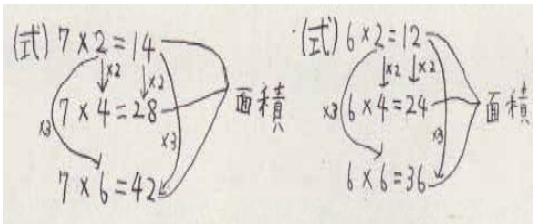 (式) 7×2=14
×2 ×2
7×4=28 面積
×3 ×3
7×6=42
(式) 6×2=12
×2 ×2
×3 6×4=24 面積
×3
6×6=36